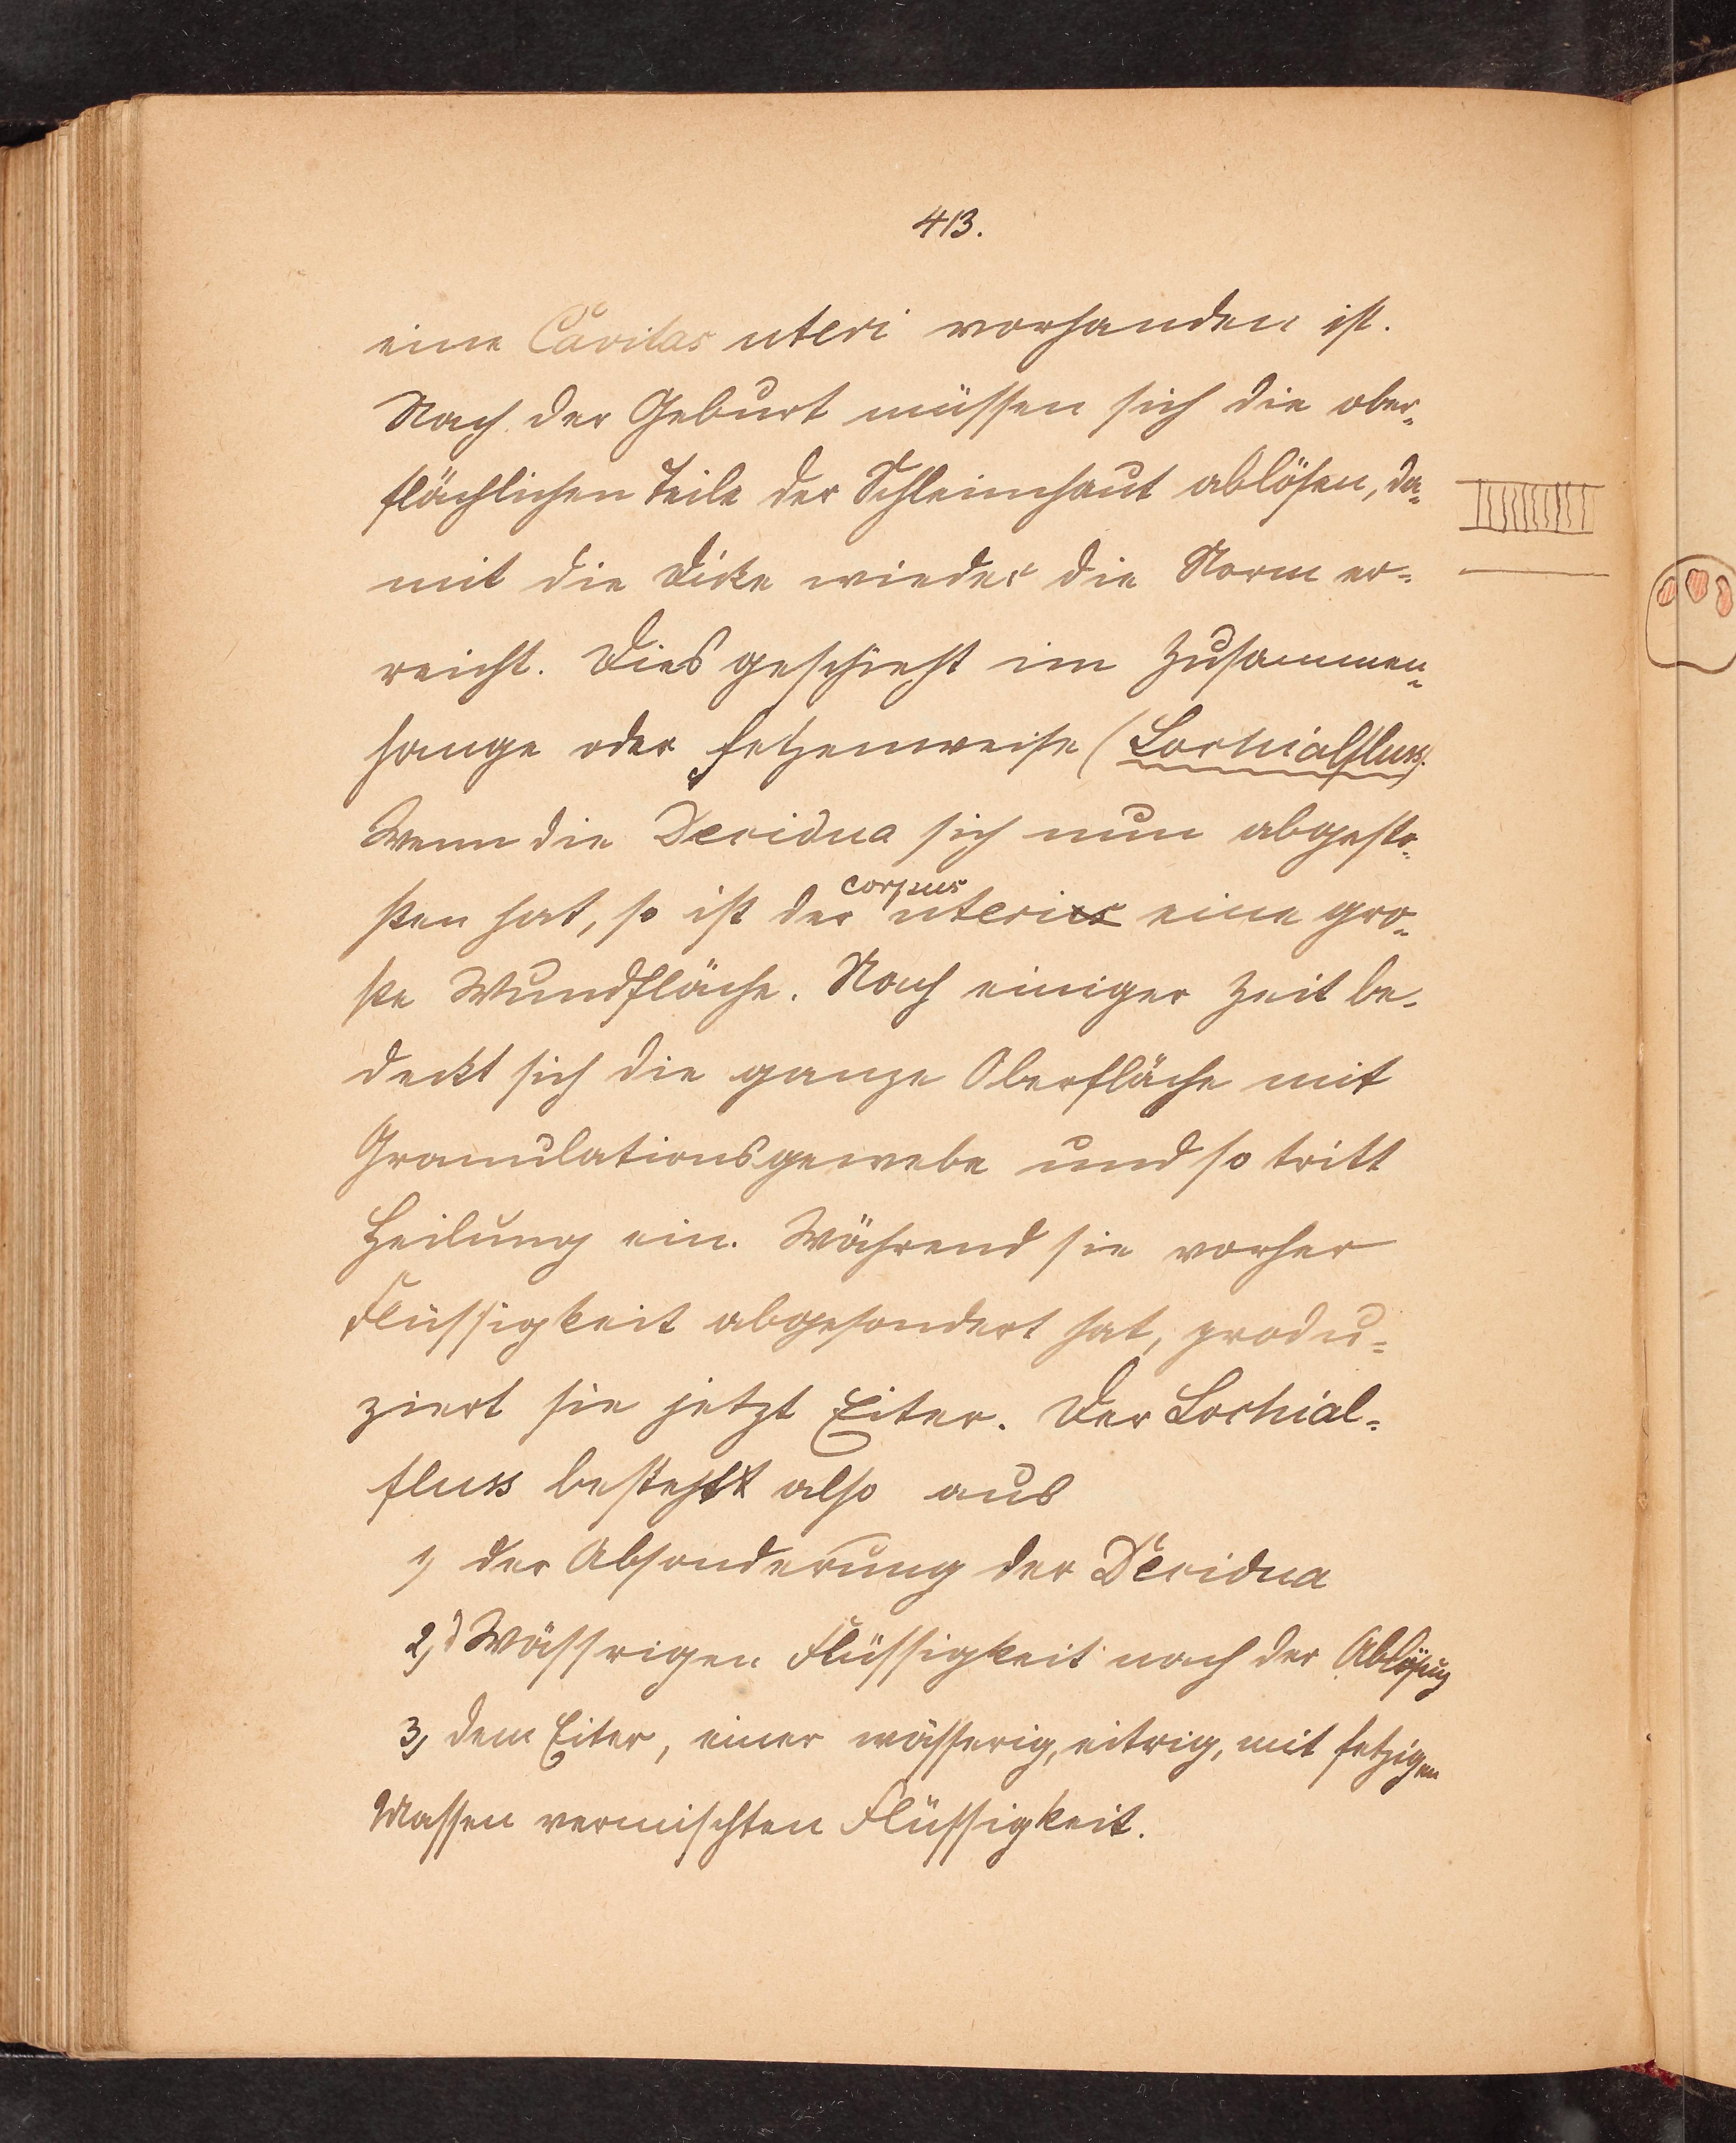 413.
eine Cavitas uteri vorhanden ist.
Nach der Geburt müssen sich die ober-
flächlichen Teile der Schleimhaut ablösen, da-
mit die Dicke wieder die Norm er-
reicht. Dies geschieht im Zusammen-
hange oder fetzenweise (Lochialfluss).
Wenn die Decidua sich nun abgesto-
ßen hat, so ist der corpus uteri eine gro-
ße Wundfläche. Nach einiger Zeit be-
deckt sich die ganze Oberfläche mit
Granulationsgewebe und so tritt
Heilung ein. Während sie vorher
Flüssigkeit abgesondert hat, produ-
ziert sie jetzt Eiter. Der Lochial-
fluss besteht also aus
1) der Absonderung der Decidua
2) d Wässrigen Flüssigkeit nach der Ablösung
3) dem Eiter, einer wässerig, eitrig, mit fetzigen
Massen vermischten Flüssigkeit.